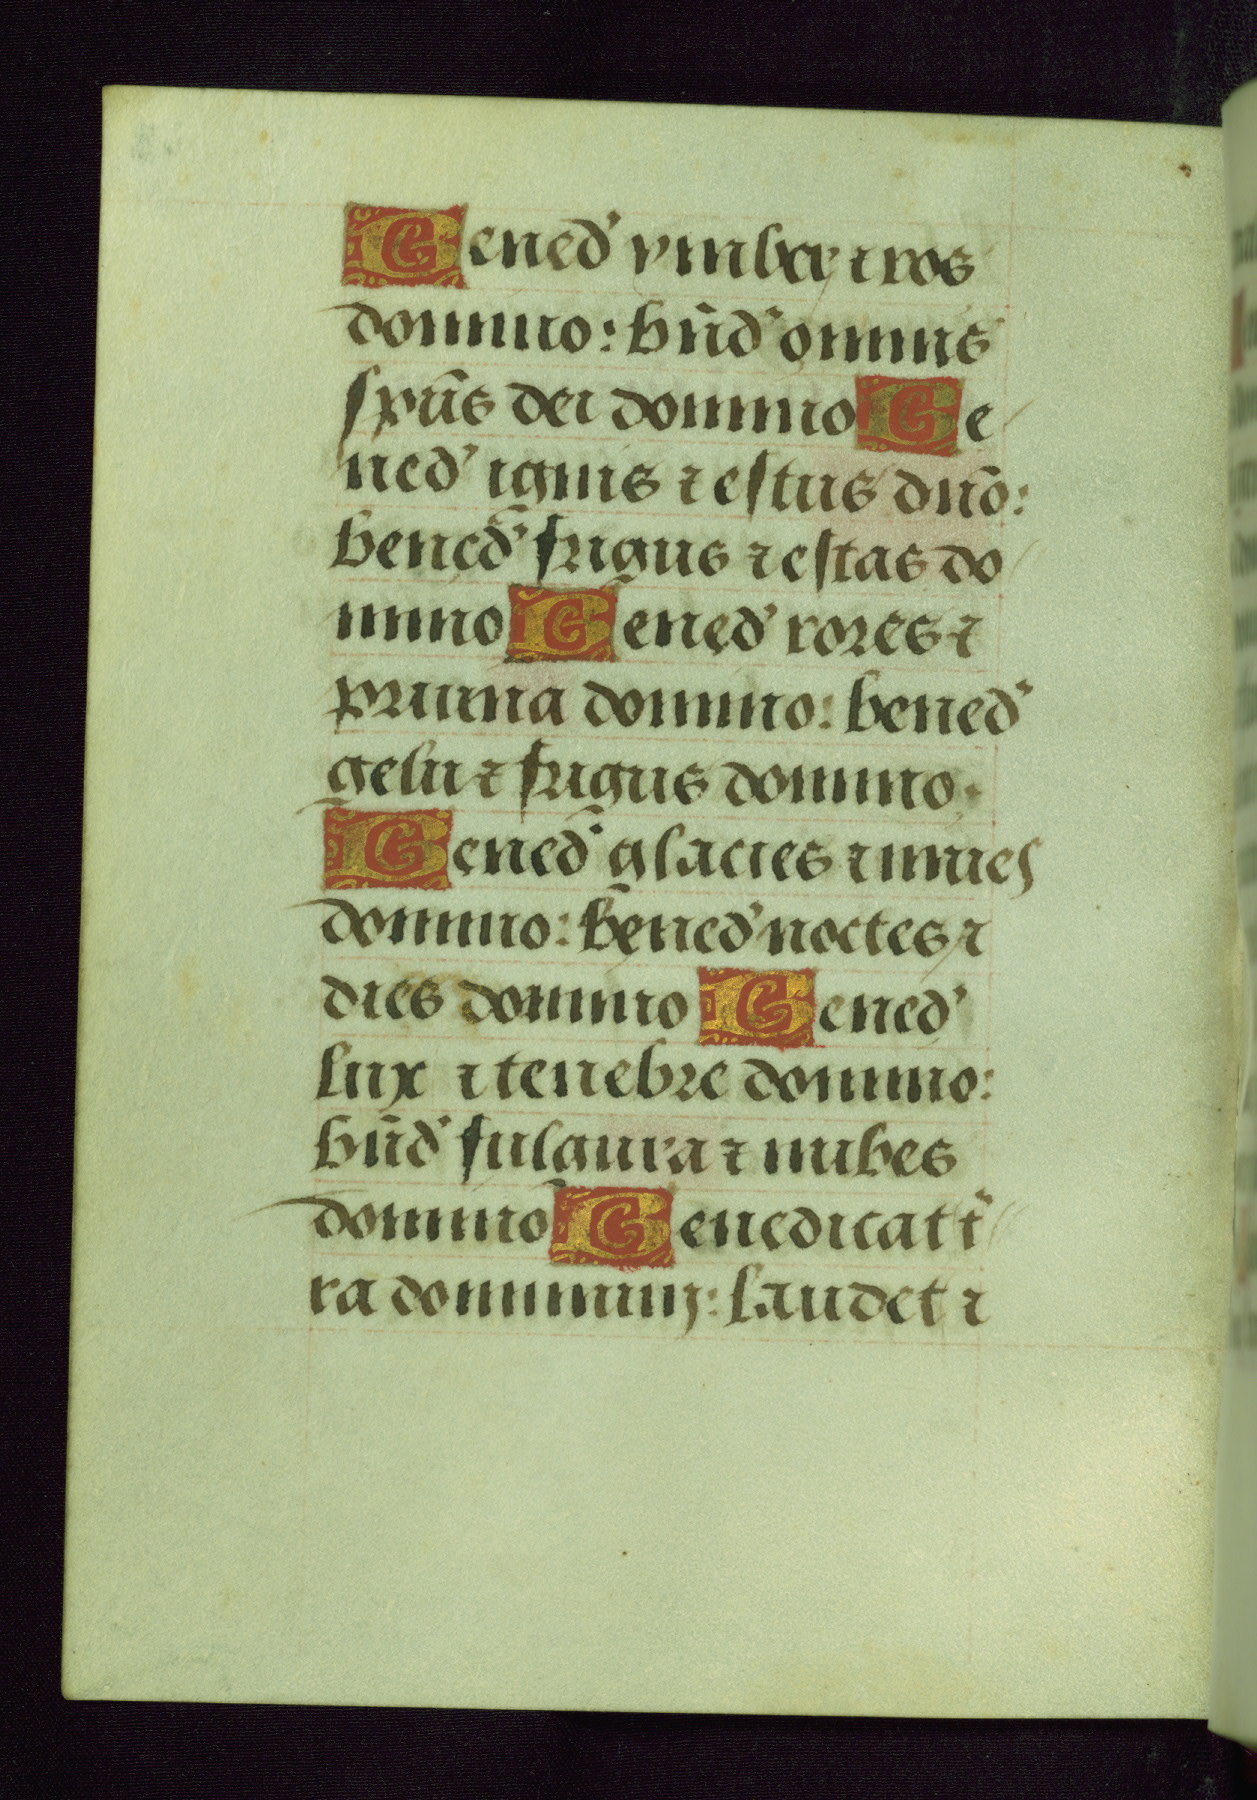 Bened' ymber ⁊ ros
domino: bn̄d' omnis
sp̄us dei domino Be
ned' ignis ⁊ estus dn̄o:
bened' frigus ⁊ estas do
mino Bened' rores ⁊
pruina domino: bened'
gelu ⁊ frigus domino.
Bened' glacies ⁊ nives
domino: bened' noctes ⁊
dies domino Bened'
lux ⁊ tenebre domino:
bn̄d' fulgura ⁊ nubes
domino Benedicat t̄
ra dominum: laudet ⁊